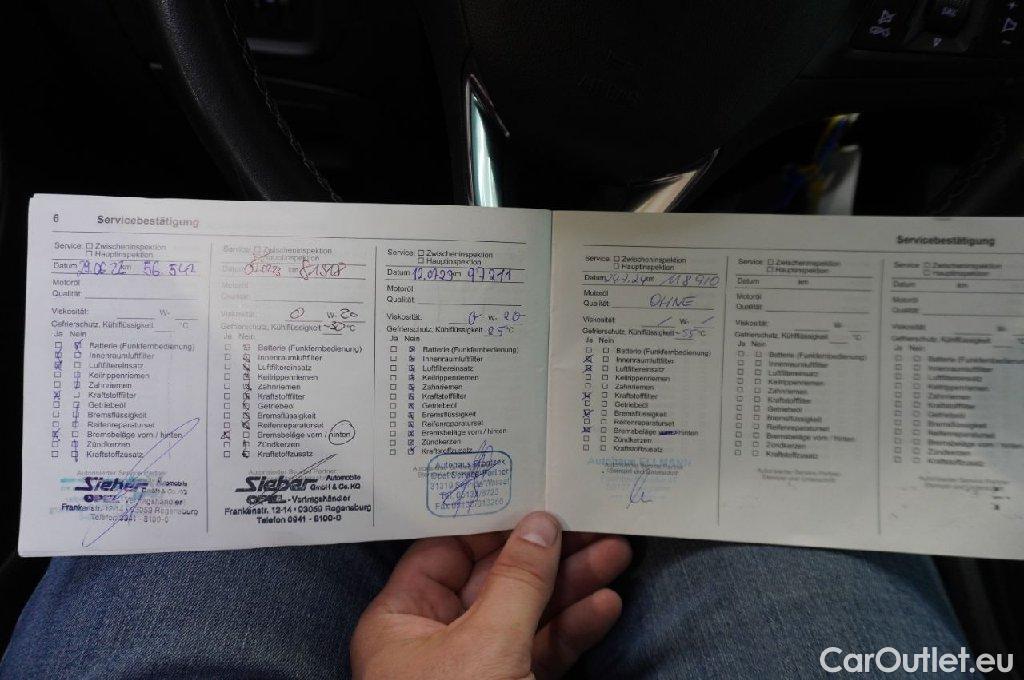 6 Servicebestätigung
Service: □ Zwischeninspektion
□ Hauptinspektion
Datum 29.06.22 km 56.542
Motoröl
Qualität
Viskosität: W-
Gefrierschutz, Kühlflüssigkeit °C
Ja Nein
Batterie (Funkfernbedienung)
Innenraumluftfilter
Luftfiltereinsatz
Keilrippenriemen
Zahnriemen
Kraftstofffilter
Getriebeöl
Bremsflüssigkeit
Reifenreparaturset
Bremsbeläge vorn / hinten
Zündkerzen
Kraftstoffzusatz
Autorisierter Service Partner
Sieber Automobile GmbH & Co. KG
OPEL - Vertragshändler
Frankenstr. 12-14 · 93059 Regensburg
Telefon 0941 - 8100-0
Service: □ Zwischeninspektion
Hauptinspektion
Datum km 81.908
Motoröl
Qualität
Viskosität: 0 W- 20
Gefrierschutz, Kühlflüssigkeit -30 °C
Ja Nein
Batterie (Funkfernbedienung)
Innenraumluftfilter
Luftfiltereinsatz
Keilrippenriemen
Zahnriemen
Kraftstofffilter
Getriebeöl
Bremsflüssigkeit
Reifenreparaturset
Bremsbeläge vorn / hinten
Zündkerzen
Kraftstoffzusatz
Autorisierter Service Partner
Sieber Automobile GmbH & Co. KG
OPEL - Vertragshändler
Frankenstr. 12-14 · 93059 Regensburg
Telefon 0941 - 8100-0
Service: □ Zwischeninspektion
□ Hauptinspektion
Datum 12.07.23 km 97211
Motoröl
Qualität
Viskosität: 0 W- 20
Gefrierschutz, Kühlflüssigkeit °C
Ja Nein
Batterie (Funkfernbedienung)
Innenraumluftfilter
Luftfiltereinsatz
Keilrippenriemen
Zahnriemen
Kraftstofffilter
Getriebeöl
Bremsflüssigkeit
Reifenreparaturset
Bremsbeläge vorn / hinten
Zündkerzen
Kraftstoffzusatz
Autohaus
Opel Service-Partner
Servicebestätigung
Service: □ Zwischeninspektion
□ Hauptinspektion
Datum km 118910
Motoröl
Qualität OHNE
Viskosität: / W- /
Gefrierschutz, Kühlflüssigkeit -35 °C
Ja Nein
Batterie (Funkfernbedienung)
Innenraumluftfilter
Luftfiltereinsatz
Keilrippenriemen
Zahnriemen
Kraftstofffilter
Getriebeöl
Bremsflüssigkeit
Reifenreparaturset
Bremsbeläge vorn / hinten
Zündkerzen
Kraftstoffzusatz
Autohaus
Service: □ Zwischeninspektion
□ Hauptinspektion
Datum km
Motoröl
Qualität
Viskosität: W-
Gefrierschutz, Kühlflüssigkeit °C
Ja Nein
Batterie (Funkfernbedienung)
Innenraumluftfilter
Luftfiltereinsatz
Keilrippenriemen
Zahnriemen
Kraftstofffilter
Getriebeöl
Bremsflüssigkeit
Reifenreparaturset
Bremsbeläge vorn / hinten
Zündkerzen
Kraftstoffzusatz
Autorisierter Service Partner
Stempel und Unterschrift
Service: □ Zwischeninspektion
□ Hauptinspektion
Datum km
Motoröl
Qualität
Viskosität: W-
Gefrierschutz, Kühlflüssigkeit
Ja Nein
Batterie (Funkfernbedienung)
Innenraumluftfilter
Luftfiltereinsatz
Keilrippenriemen
Zahnriemen
Kraftstofffilter
Getriebeöl
Bremsflüssigkeit
Reifenreparaturset
Bremsbeläge vorn / hinten
Zündkerzen
Kraftstoffzusatz
Autorisierter Service Partner
Stempel und Unterschrift
CarOutlet.eu